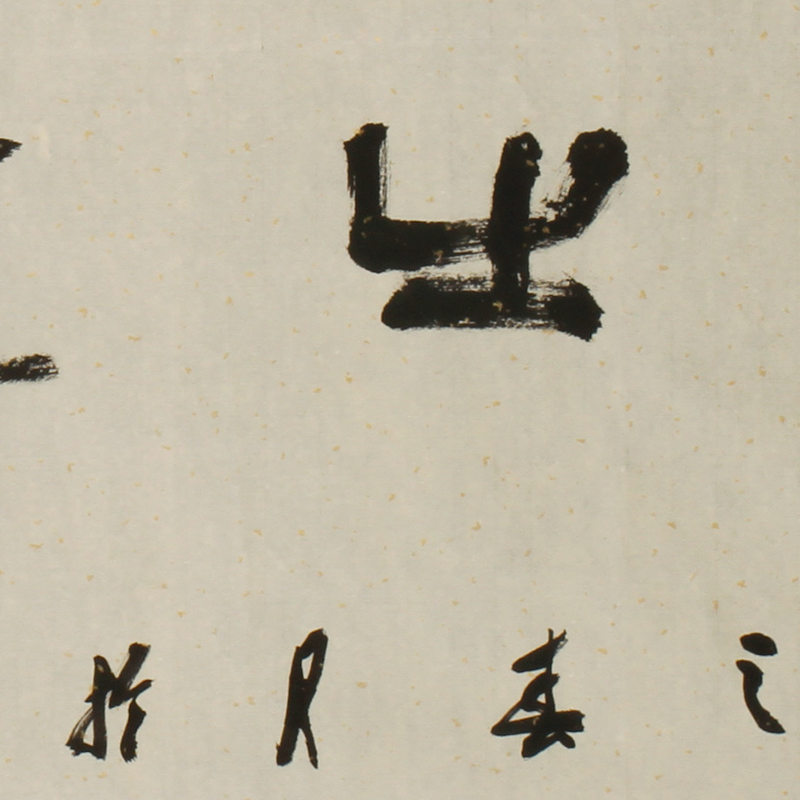 之
之春月於